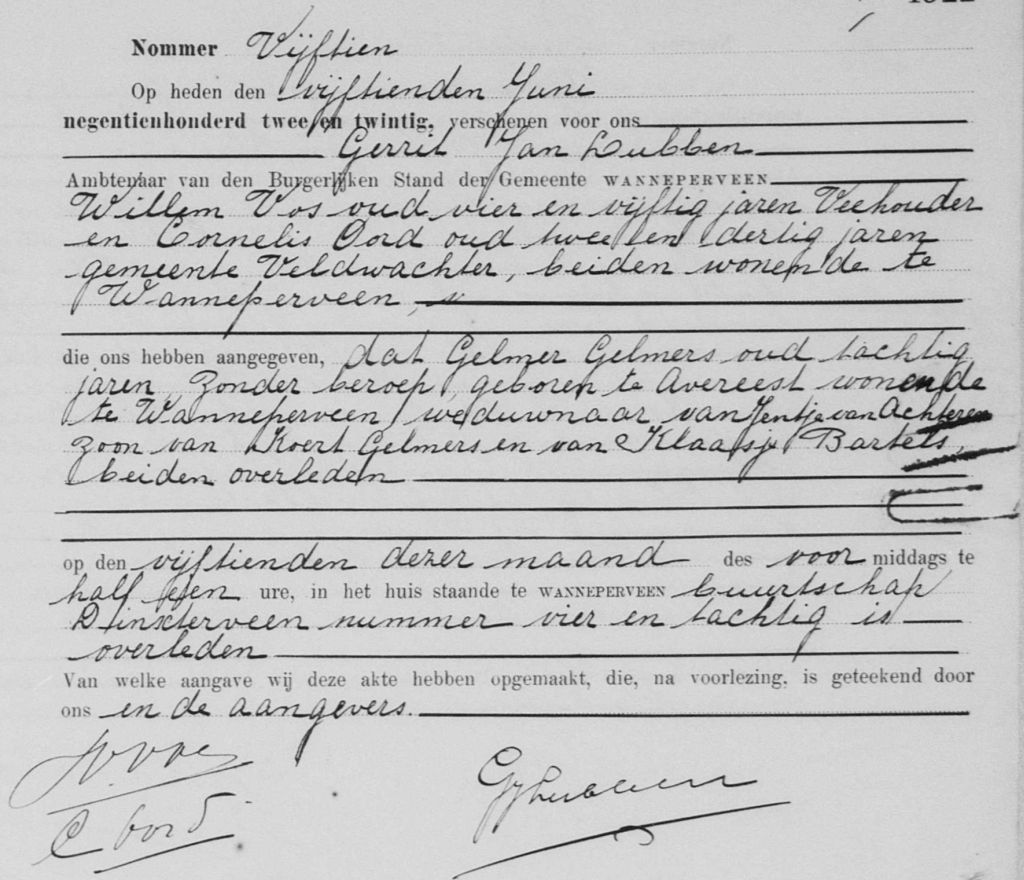 Nommer Vijftien
Op heden den vijftienden Juni
negentienhonderd twee en twintig, verschenen voor ons
Gerrit Jan Lubben
Ambtenaar van den Burgerlijken Stand der Gemeente WANNEPERVEEN
Willem Vos oud vier en vijftig jaren Veehouder
en Cornelis Oord oud twee en dertig jaren
gemeente Veldwachter, beiden wonende te
Wanneperveen,
die ons hebben aangegeven, dat Gelmer Gelmers oud tachtig
jaren, zonder beroep, geboren te Avereest wonende
te Wanneperveen, weduwnaar van Jentje van Achteren
zoon van Koert Gelmers en van Klaasje Bartels,
beiden overleden
op den vijftienden dezer maand des voor middags te
half een ure, in het huis staande te WANNEPERVEEN buurtschap
Dinxterveen nummer vier en tachtig is
overleden
Van welke aangave wij deze akte hebben opgemaakt, die, na voorlezing, is geteekend door
ons en de aangevers.
W Vos
GJ Lubben
C Oord